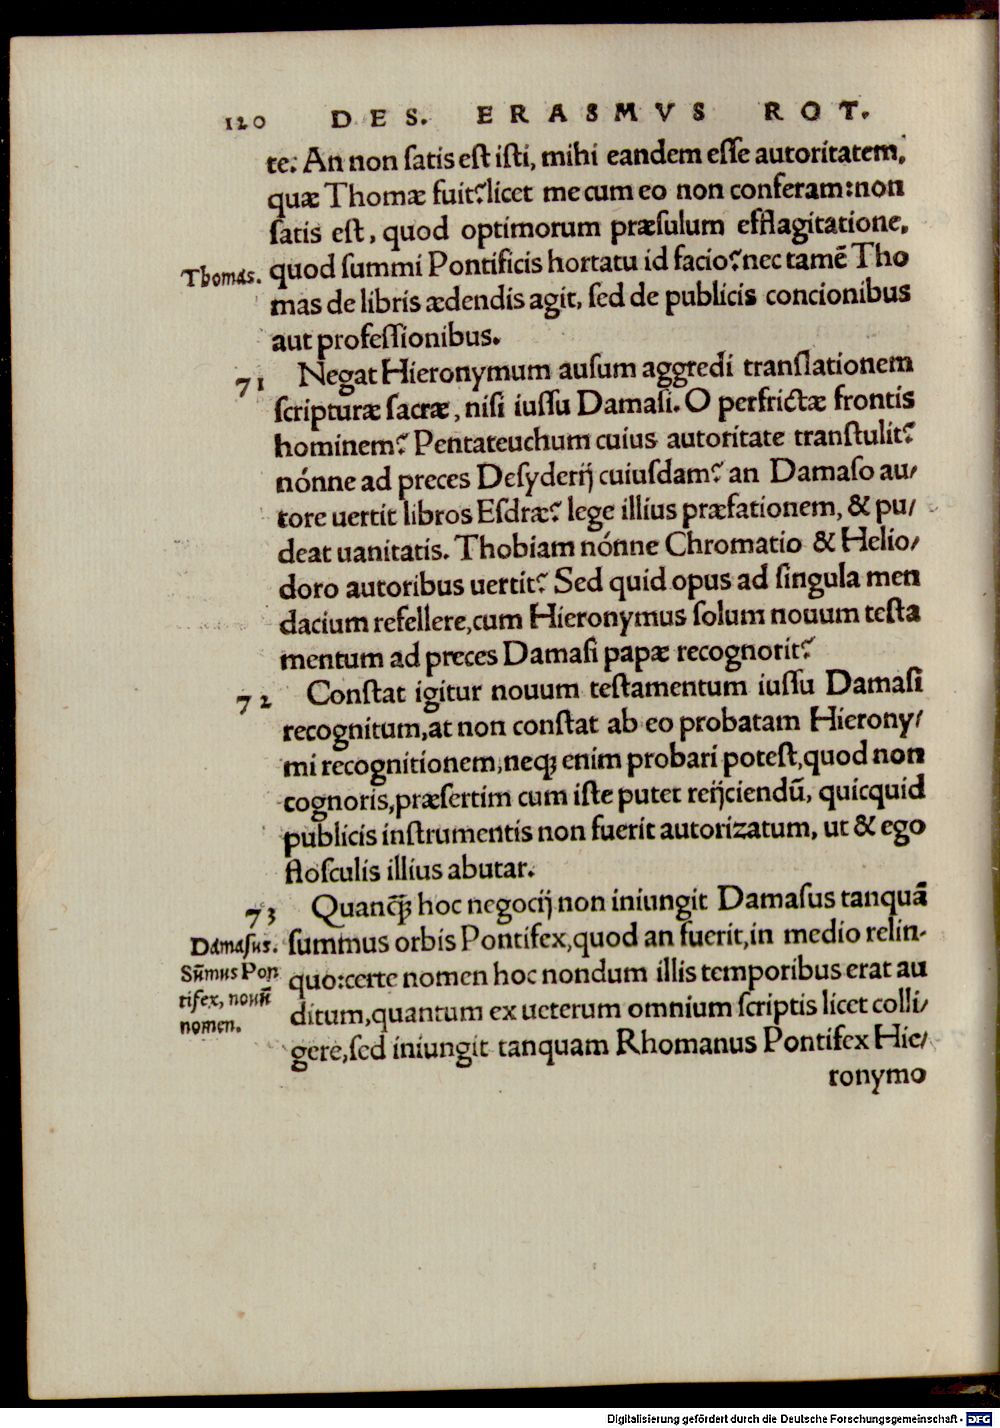 120 DES. ERASMVS ROT.
te. An non satis est isti, mihi eandem esse autoritatem,
quæ Thomæ fuit? licet me cum eo non conferam: non
satis est, quod optimorum præsulum efflagitatione,
Thomas. quod summi Pontificis hortatu id facio? nec tamē Tho
mas de libris ædendis agit, sed de publicis concionibus
aut professionibus.
71 Negat Hieronymum ausum aggredi translationem
scripturæ sacræ, nisi iussu Damasi. O perfrictæ frontis
hominem? Pentateuchum cuius autoritate transtulit?
nónne ad preces Desyderij cuiusdam? an Damaso au/
tore uertit libros Esdræ? lege illius præfationem, & pu/
deat uanitatis. Thobiam nónne Chromatio & Helio/
doro autoribus uertit? Sed quid opus ad singula men
dacium refellere, cum Hieronymus solum nouum testa
mentum ad preces Damasi papæ recognorit?
72 Constat igitur nouum testamentum iussu Damasi
recognitum, at non constat ab eo probatam Hierony/
mi recognitionem, neqꝫ enim probari potest, quod non
cognoris, præsertim cum iste putet reijciendū, quicquid
publicis instrumentis non fuerit autorizatum, ut & ego
flosculis illius abutar.
73 Quanq̄ꝫ hoc negocij non iniungit Damasus tanquā
Damasus. summus orbis Pontifex, quod an fuerit, in medio relin-
Sūmus Pon quo: certe nomen hoc nondum illis temporibus erat au
tifex, nouū ditum, quantum ex ueterum omnium scriptis licet colli/
nomen. gere, sed iniungit tanquam Rhomanus Pontifex Hie/
ronymo
Digitalisierung gefördert durch die Deutsche Forschungsgemeinschaft - DFG